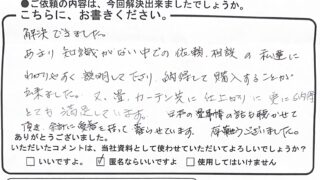 ●ご依頼の内容は、今回解決出来ましたでしょうか。
こちらに、お書きください。
解決できました。
あまり知識がない中での依頼、相談の私達に
わかりやすく説明して下さり、納得して購入することが
出来ました。又、畳、カーテン共に仕上がりに更に
とても満足しています。日本の畳事情の話も聴かせて
頂き、余計に愛着を持って暮らせています。有難うございました。
ありがとうございました。
いただいたコメントは、当社資料として使わせていただいてよろしいでしょうか?
□いいですよ。 ☑匿名ならいいですよ □使用してはいけません